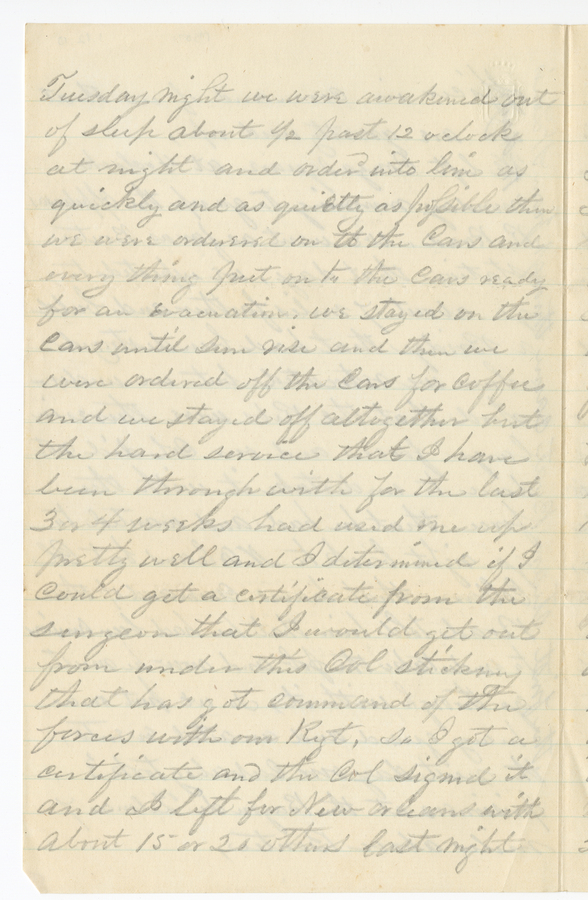 Tuesday night we were awakened out
of sleep about 1/2 past 12 oclock
at night and order'd into line as
quickly and as quietly as possible then
we were ordererd on to the Cars and
every thing put on to the Cars ready
for an evacuation. we stayed on the
Cars until sun rise and then we
were ordered off the Cars for coffee
and we stayed off altogether but
the hard service that I have
been through with for the last
3 or 4 weeks had used me up
pretty well and I determined if I
could get a certificate from the
surgeon that I would get out
from under this Col stickney
that has got command of the
forces with our Rgt, so I got a
certificate and the Col signed it
and I left for New orleans with
about 15 or 20 others last night